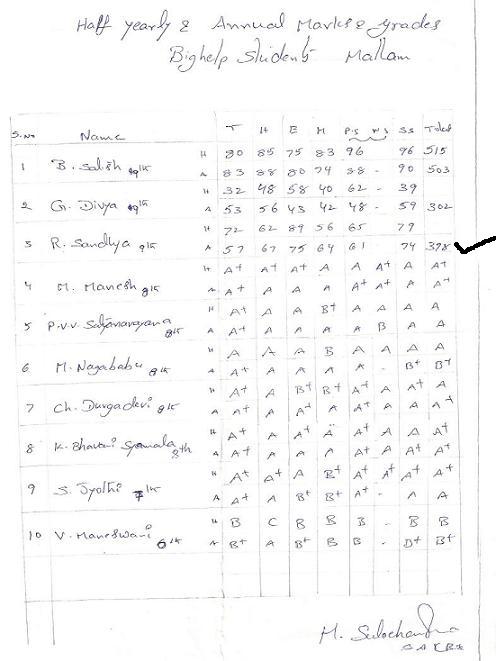 Half yearly & Annual Marks & grades
Bighelp Students Mallam
S.No Name T H E M P.S N.S SS Total
1 B. Satish 9th H 80 85 75 83 96 96 515
A 83 88 80 74 88 - 90 503
H 32 48 58 40 62 - 39
2 G. Divya 9th A 53 56 43 42 48 - 59 302
H 72 62 89 56 65 79
3 R. Sandhya 9th A 57 67 75 64 61 74 398
H A+ A+ A+ A A A+ A A+
4 M. Manesh 8th A A+ A A A A+ A+ A A+
H A+ A A B+ A A A A
5 P.V.V. Satyanarayana 8th A A+ A A A A B A A
H A A A B A A A A
6 M. Nagababu 8th A A+ A A A A - B+ B+
H A+ A B+ B+ A+ A A+ A
7 Ch. Durgadevi 8th A A+ A A+ A A A+ A A+
H A+ A A+ A A+ A A A+
8 K. Bhavani Syamala 8th A A+ A A A A+ A+ A A+
H A+ A+ A B+ A+ A A+ A+
9 S. Jyothi 7th A A+ A B+ B+ A+ - A A
H B C B B B - B B
10 V. Maneswari 6th A B+ A B+ B B - B+ B+
M. Sulochana